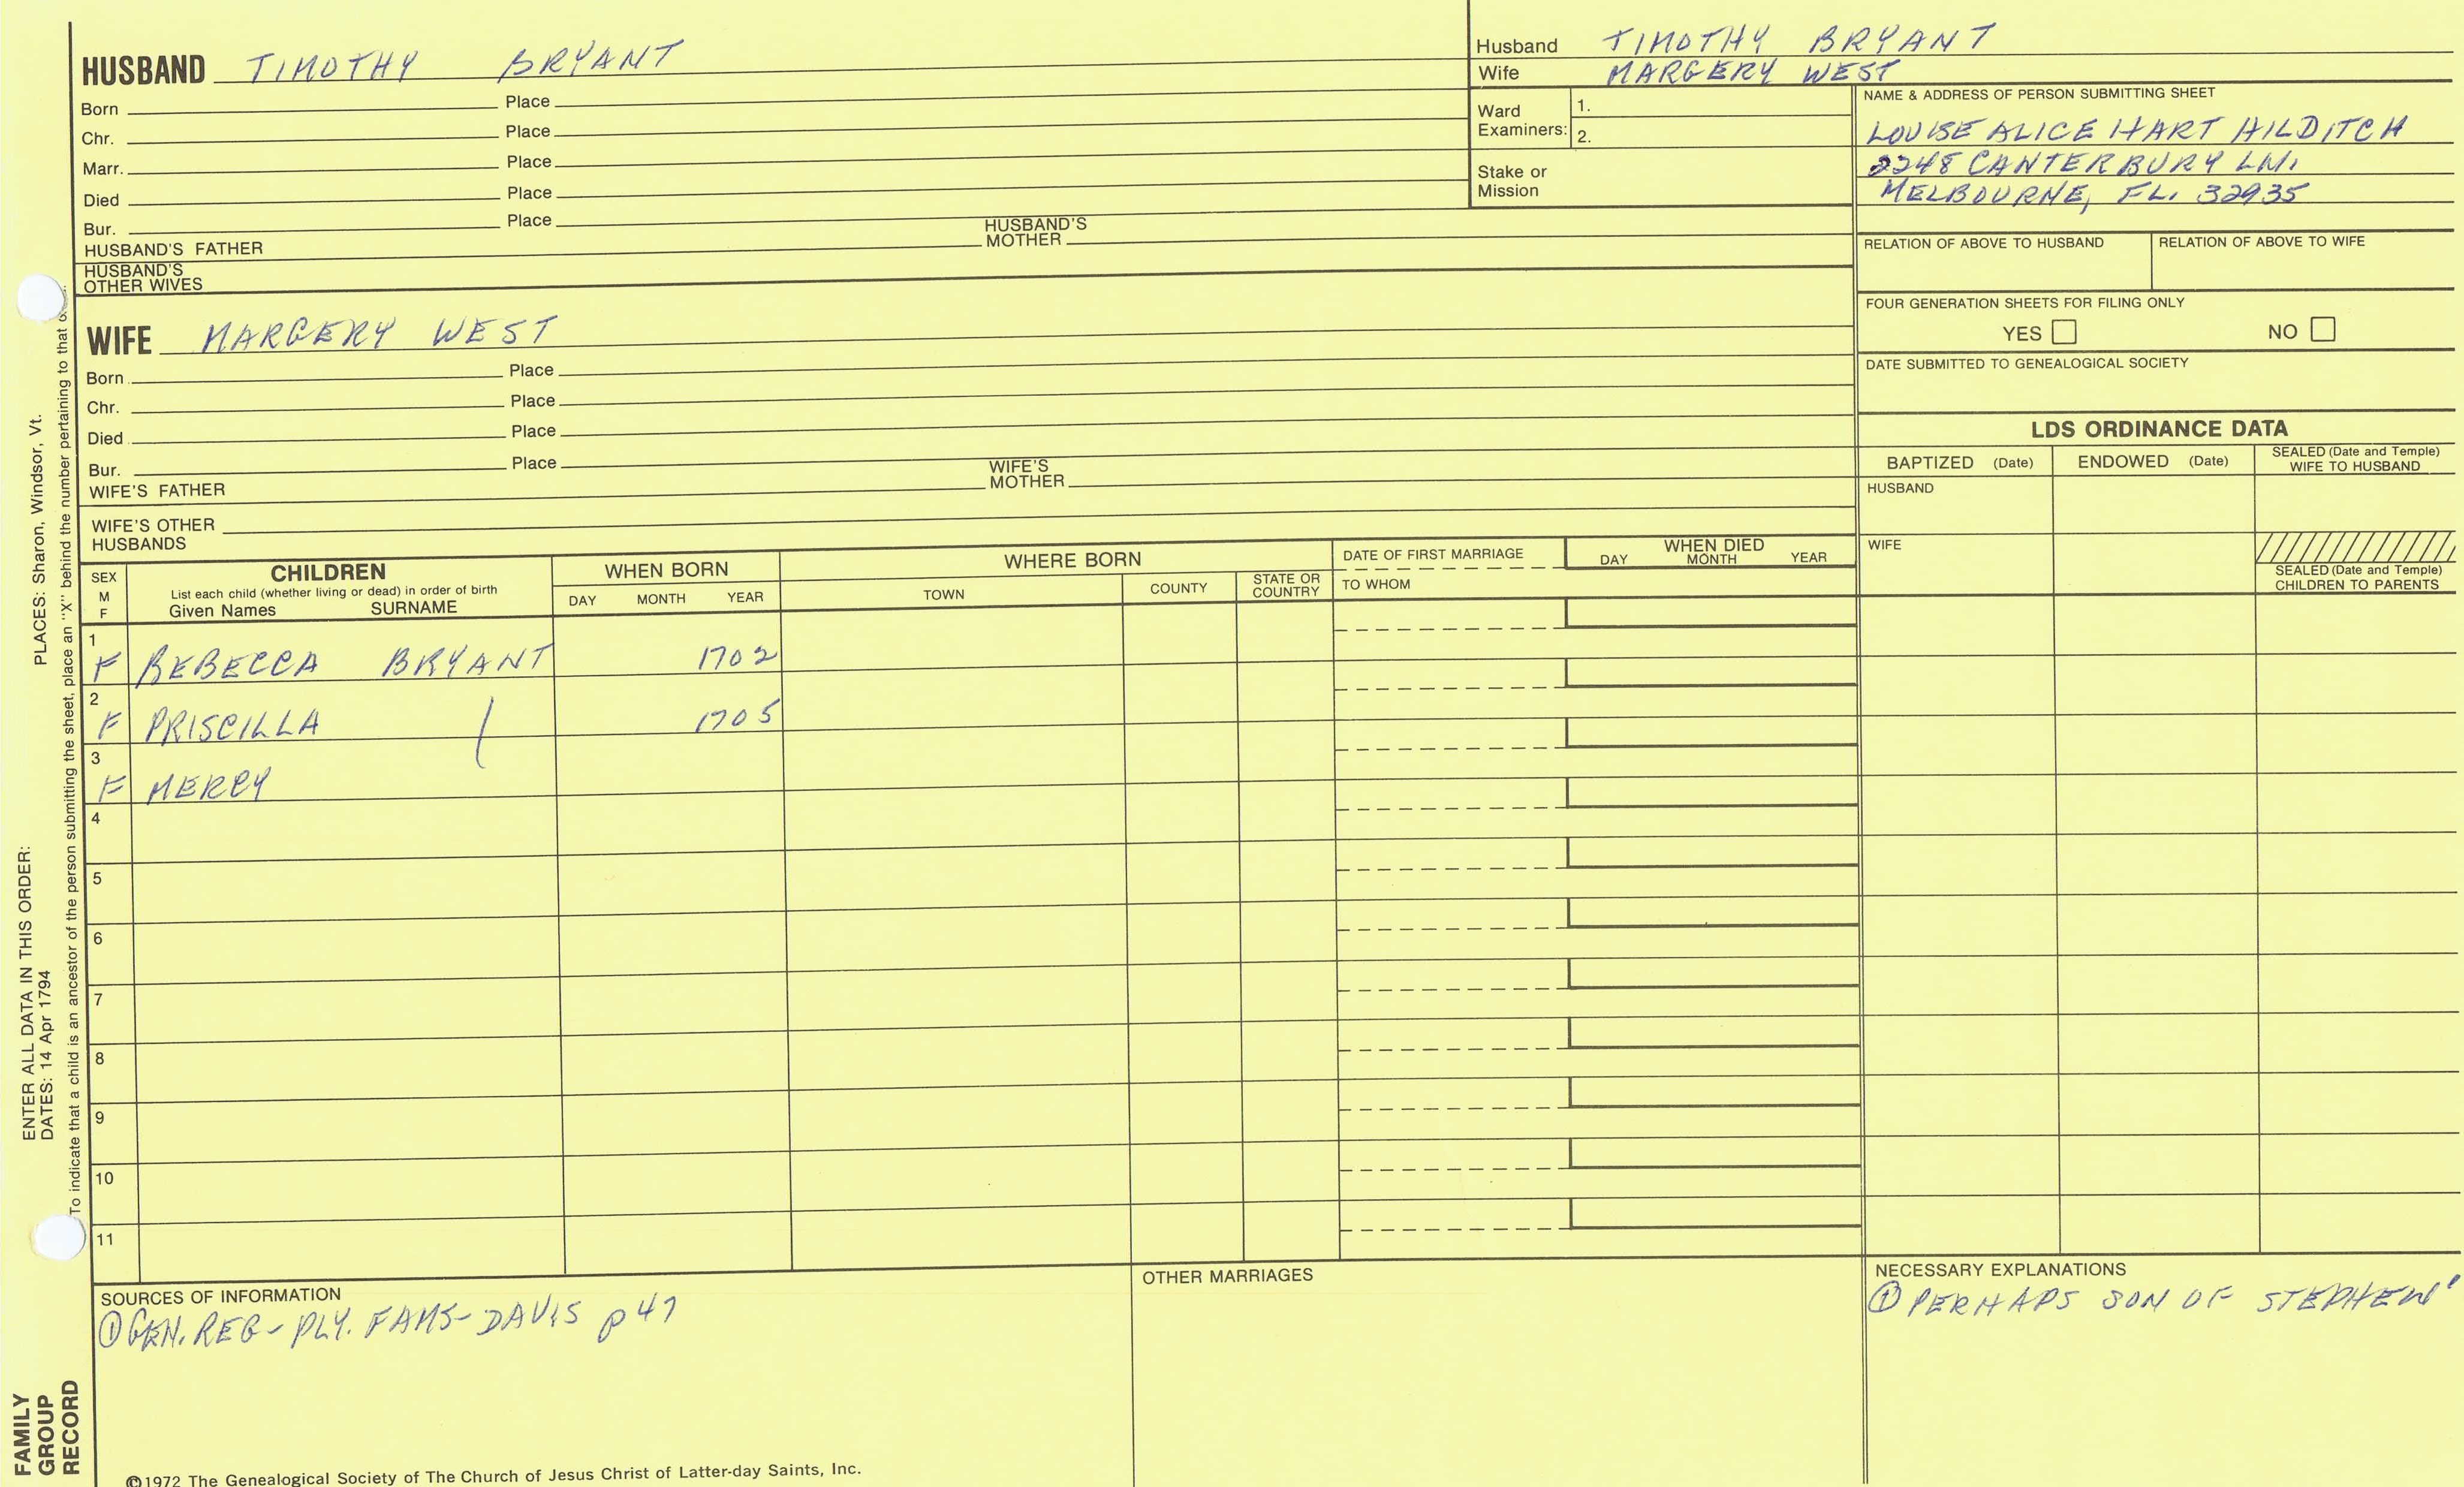 HUSBAND TIMOTHY BRYANT
Born Place
Chr. Place
Marr. Place
Died Place
Bur. Place
HUSBAND'S FATHER HUSBAND'S MOTHER
HUSBAND'S OTHER WIVES
WIFE MARGERY WEST
Born Place
Chr. Place
Died Place
Bur. Place
WIFE'S FATHER WIFE'S MOTHER
WIFE'S OTHER HUSBANDS
Husband TIMOTHY BRYANT
Wife MARGERY WEST
Ward Examiners: 1.
2.
Stake or Mission
NAME & ADDRESS OF PERSON SUBMITTING SHEET
LOUISE ALICE HART HILDITCH
2248 CANTERBURY LN.
MELBOURNE, FL. 32935
RELATION OF ABOVE TO HUSBAND RELATION OF ABOVE TO WIFE
FOUR GENERATION SHEETS FOR FILING ONLY
YES NO
DATE SUBMITTED TO GENEALOGICAL SOCIETY
LDS ORDINANCE DATA
BAPTIZED (Date) ENDOWED (Date) SEALED (Date and Temple) WIFE TO HUSBAND
HUSBAND
WIFE
SEALED (Date and Temple)
CHILDREN TO PARENTS
SEX M F CHILDREN
List each child (whether living or dead) in order of birth
Given Names SURNAME
WHEN BORN
DAY MONTH YEAR
WHERE BORN
TOWN COUNTY STATE OR COUNTRY
DATE OF FIRST MARRIAGE
TO WHOM
WHEN DIED
DAY MONTH YEAR
1
F REBECCA BRYANT 1702
2
F PRISCILLA 1705
3
F MERCY
4
5
6
7
8
9
10
11
SOURCES OF INFORMATION
① GEN. REG - PLY. FAMS - DAVIS p 47
OTHER MARRIAGES
NECESSARY EXPLANATIONS
① PERHAPS SON OF STEPHEN'
©1972 The Genealogical Society of The Church of Jesus Christ of Latter-day Saints, Inc.
ENTER ALL DATA IN THIS ORDER:
DATES: 14 Apr 1794
PLACES: Sharon, Windsor, Vt.
To indicate that a child is an ancestor of the person submitting the sheet, place an "X" behind the number pertaining to that
FAMILY
GROUP
RECORD